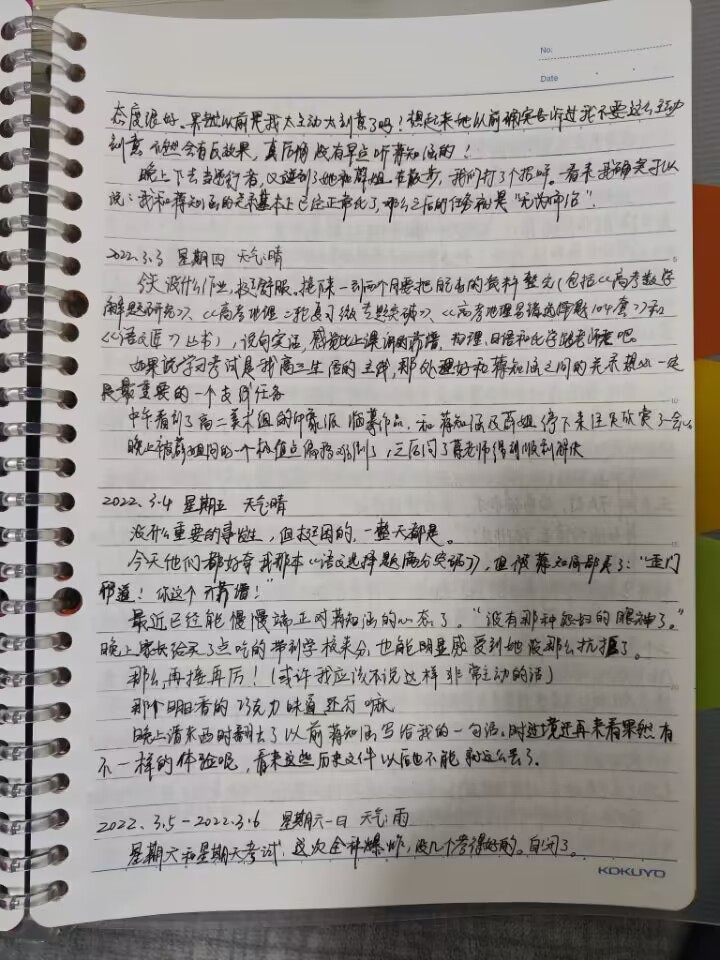 No.
Date
态度很好。果然以前是我太主动太刻意了吗！想起来她以前确实告诉过我不要这么主动
刻意 不然会有反效果，真后悔没有早点听蒋知涵的！
晚上下去当逆行者，又碰到了她和薛姐在散步，我们打了个招呼。看来我确实可以
说：我和蒋知涵的关系基本上已经正常化了，那么之后的任务就是“无为而治”.
2022.3.3 星期四 天气晴
今天没什么作业，挺舒服。接下来一到两个月要把所有的资料整完（包括《高考数学
解题研究》、《高考地理二轮复习微专题突破》、《高考地理 选择题104套》和
《语文 》丛书），说句实话，感觉比上课 靠谱。物理、日语和化学 老师 吧。
如果说学习考试是我高三生活的主线，那处理好和蒋知涵之间的关系想必一定
是最重要的一个支线任务
中午看到了高二美术组的印象派临摹作品，和蒋知涵及薛姐停下来驻足欣赏了一会儿
晚上被薛姐问的一个极值点偏移难倒了，之后问了 老师得到顺利解决
2022.3.4 星期五 天气晴
没什么重要的事发生，但挺困的，一整天都是。
今天他们都好奇我那本《语文选择题满分突破》，但被蒋知涵鄙夷了：“歪门
邪道！你这个不靠谱！”
最近已经能慢慢端正对蒋知涵的心态了。“没有那种 的眼神了。”
晚上家长给买了点吃的带到学校来分，也能明显感受到她没那么抗拒了。
那么，再接再厉！（或许我应该不说这样非常主动的话）
那个明香的巧克力味道还行嘛
晚上清东西时翻出了以前蒋知涵写给我的一句话。时过境迁再来看果然有
不一样的体验呢，看来这些历史文件以后也不能就这么丢了.
2022.3.5-2022.3.6 星期六-日 天气雨
星期六和星期天考试，这次全科爆炸，没几个考得好的。自闭了。
KOKUYO